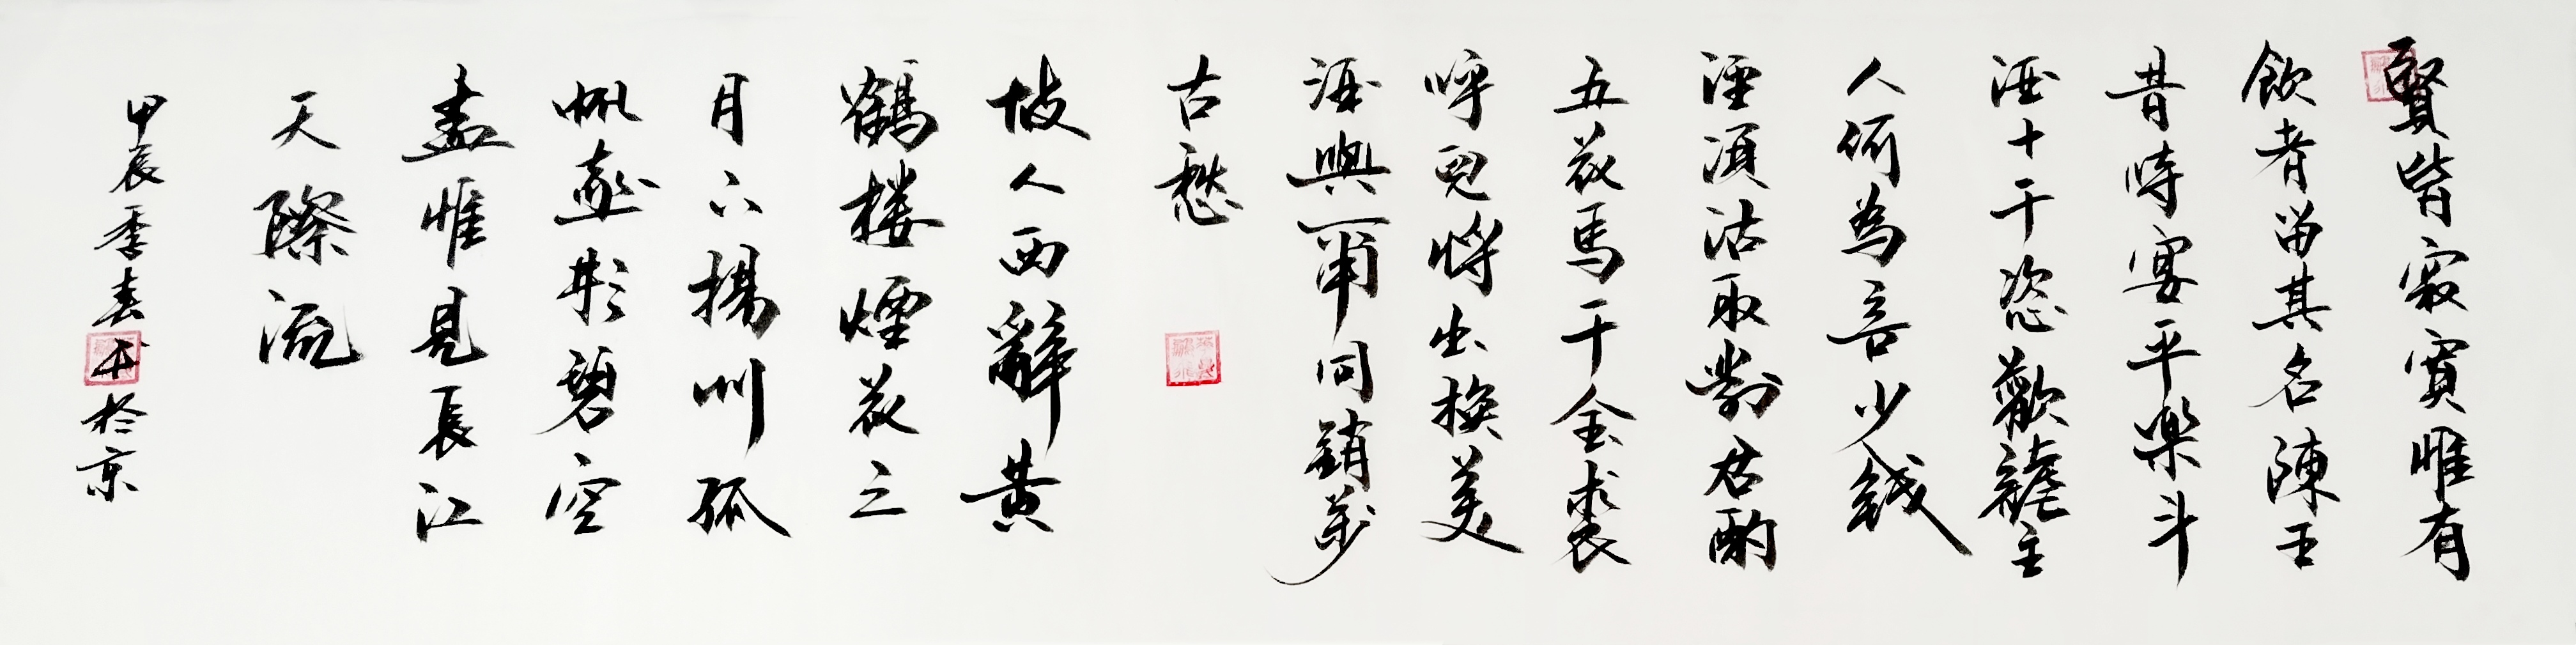 賢皆寂寞惟有
飲者留其名陳王
昔時宴平樂斗
酒十千恣歡謔主
人何為言少錢
逕須沽取對君酌
五花馬千金裘
呼兒將出換美
酒與爾同銷萬
古愁
故人西辭黃
鶴樓煙花三
月下揚州孤
帆遠影碧空
盡惟見長江
天際流
甲辰季春
於京